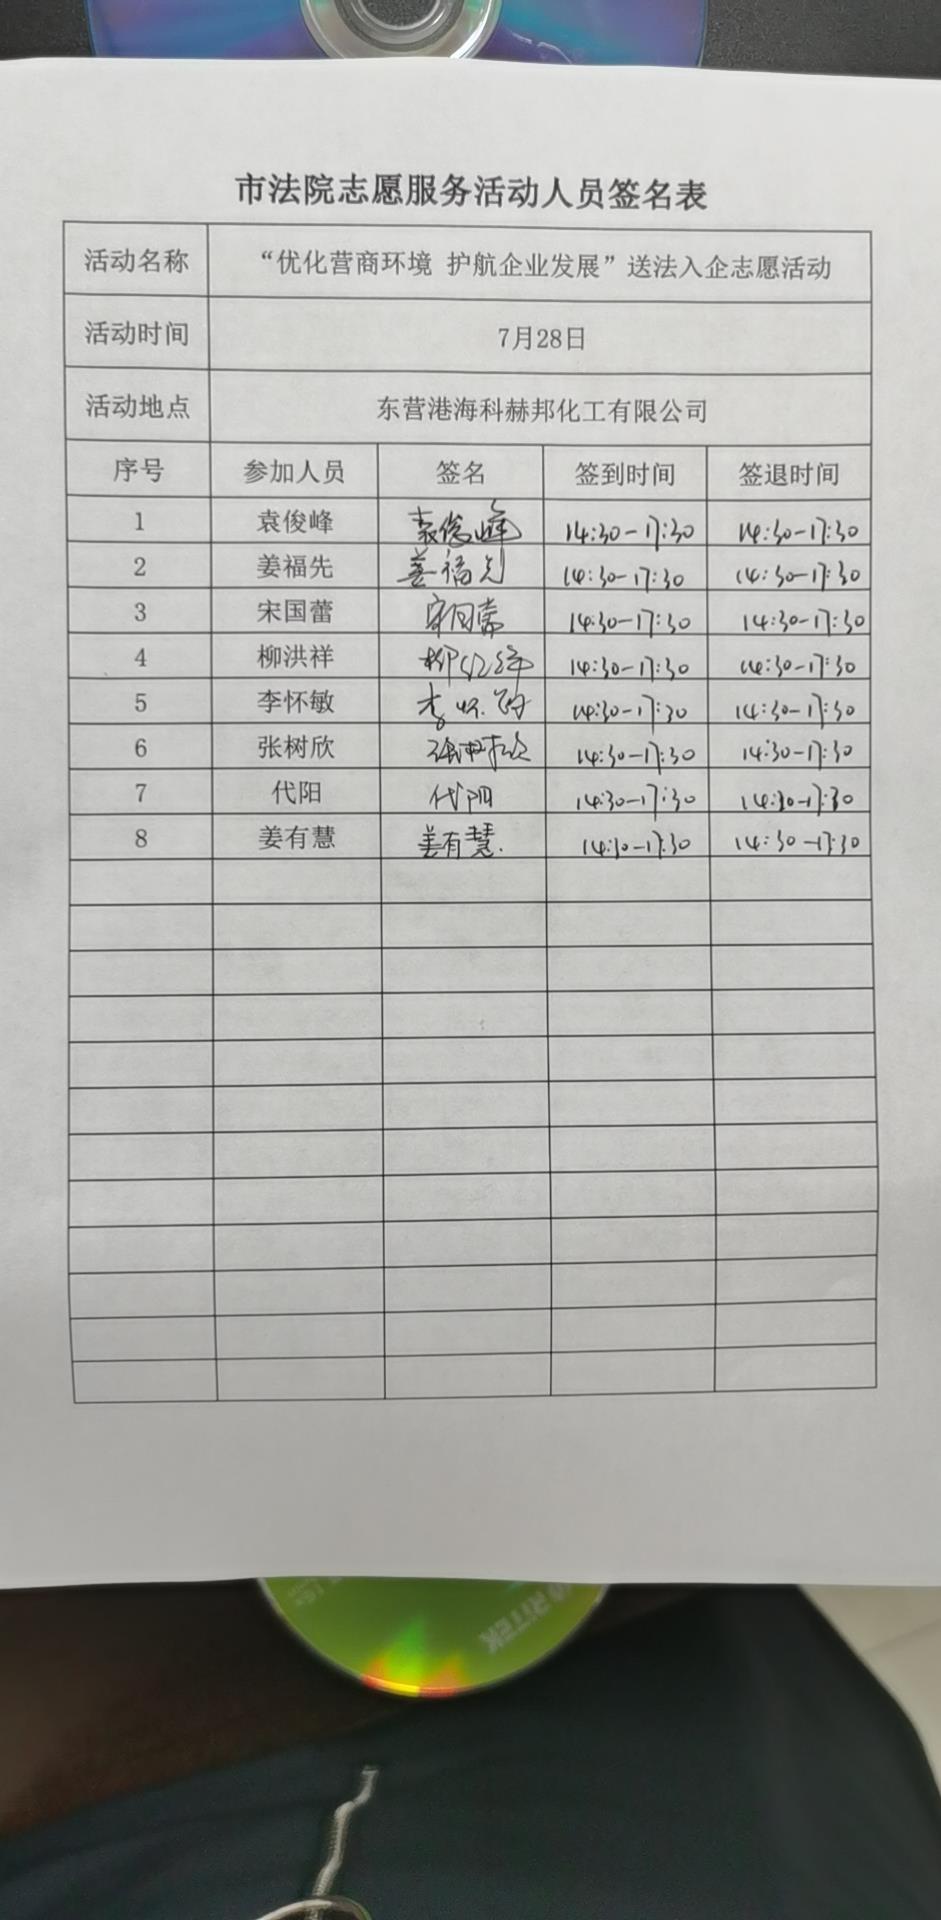 市法院志愿服务活动人员签名表
活动名称 “优化营商环境 护航企业发展”送法入企志愿活动
活动时间 7月28日
活动地点 东营港海科赫邦化工有限公司
序号 参加人员 签名 签到时间 签退时间
1 袁俊峰 袁俊峰 14:30-17:30 14:30-17:30
2 姜福先 姜福先 14:30-17:30 14:30-17:30
3 宋国蕾 宋国蕾 14:30-17:30 14:30-17:30
4 柳洪祥 柳洪祥 14:30-17:30 14:30-17:30
5 李怀敏 李怀敏 14:30-17:30 14:30-17:30
6 张树欣 张树欣 14:30-17:30 14:30-17:30
7 代阳 代阳 14:30-17:30 14:30-17:30
8 姜有慧 姜有慧. 14:30-17:30 14:30-17:30
RITEK